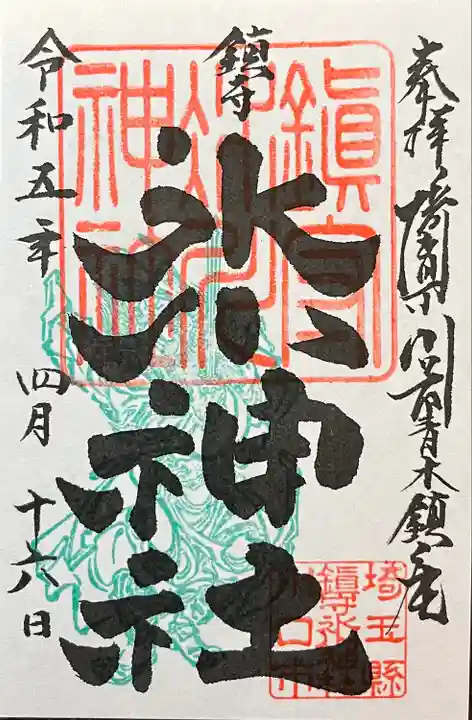 奉拝 埼玉県川口市青木鎮座
鎮守
氷川神社
令和五年 四月 十六日
鎮守
氷川
神社
埼玉縣
川口市